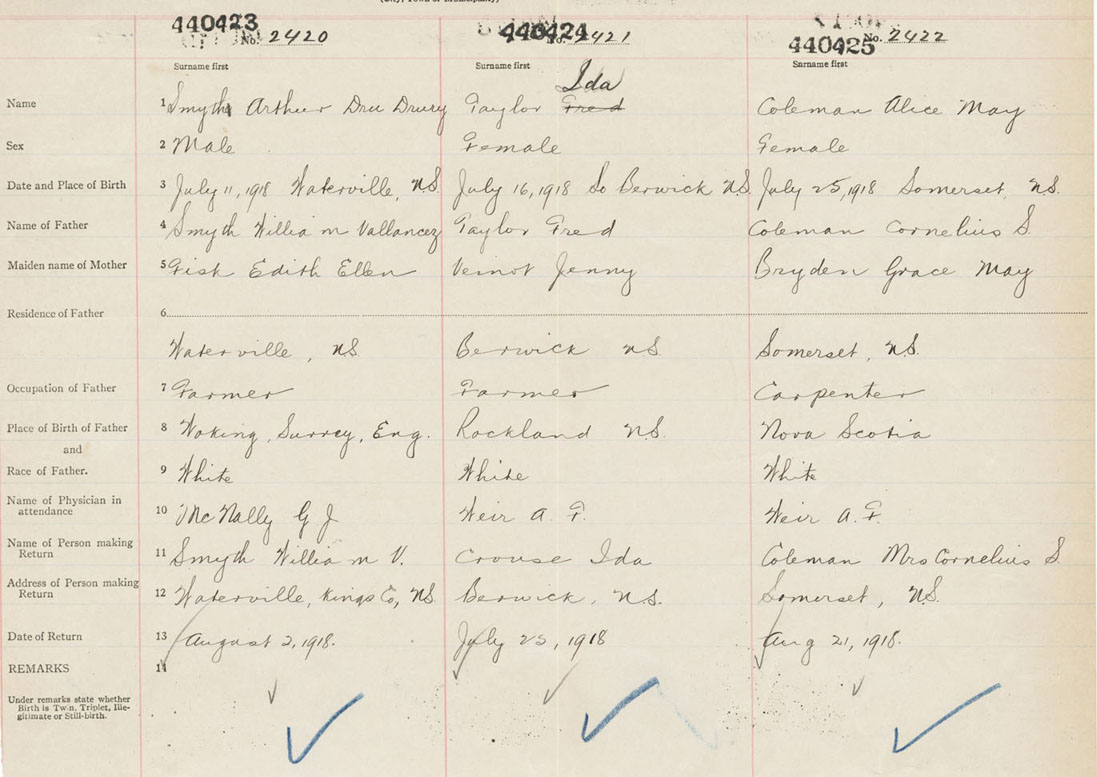 (City, Town or Municipality)
440423 440424 440425
No. 2420 No. 2421 No. 2422
Surname first Surname first Surname first
Name 1 Smyth Arthur Dru Drury Taylor Fred Ida Coleman Alice May
Sex 2 Male Female Female
Date and Place of Birth 3 July 11, 1918 Waterville, N.S. July 16, 1918 So Berwick N.S. July 25, 1918 Somerset, N.S.
Name of Father 4 Smyth William Vallancey Taylor Fred Coleman Cornelius S
Maiden name of Mother 5 Fisk Edith Ellen Veinot Jenny Bryden Grace May
Residence of Father 6
Waterville, NS Berwick NS. Somerset, N.S.
Occupation of Father 7 Farmer Farmer Carpenter
Place of Birth of Father 8 Woking, Surrey, Eng. Rockland N.S. Nova Scotia
and
Race of Father. 9 White White White
Name of Physician in
attendance 10 McNally G J Weir A. F. Weir A. F.
Name of Person making
Return 11 Smyth William V. Crouse Ida Coleman Mrs Cornelius S
Address of Person making
Return 12 Waterville, Kings Co, N.S. Berwick, N.S. Somerset, N.S.
Date of Return 13 August 2, 1918. July 25, 1918 Aug 21, 1918.
REMARKS 14
Under remarks state whether
Birth is Twin, Triplet, Ille-
gitimate or Still-birth.